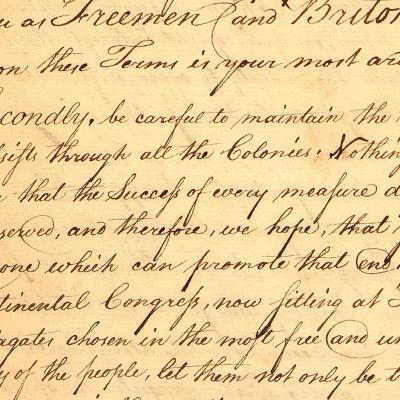 u as Freemen (and Briton
on these Terms is your most ar
condly. be careful to maintain the
sists through all the Colonies. Nothing
that the Success of every measure d
served, and therefore, we hope, that
one which can promote that end.
tinental Congreſs, now sitting at
agates chosen in the moſt free (and un
y of the people, let them not only be t